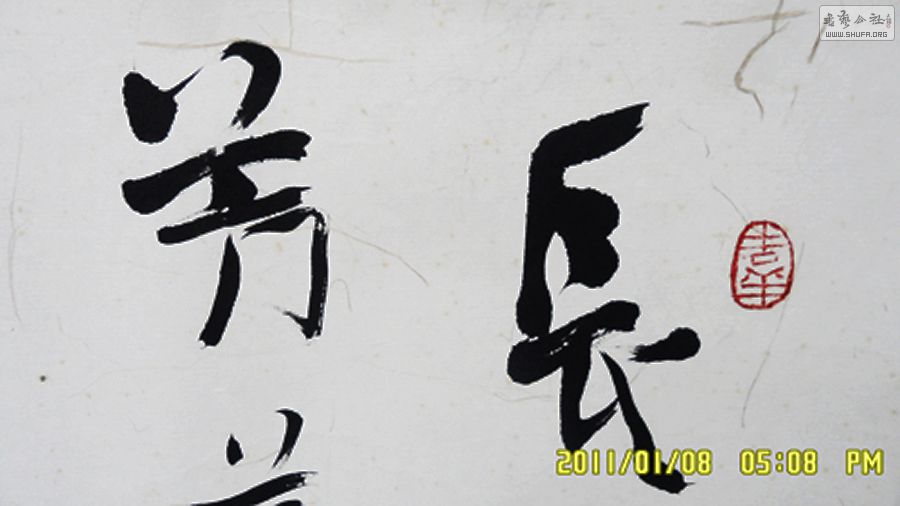 長
芳
书艺公社
WWW.SHUFA.ORG
2011/01/08 05:08 PM